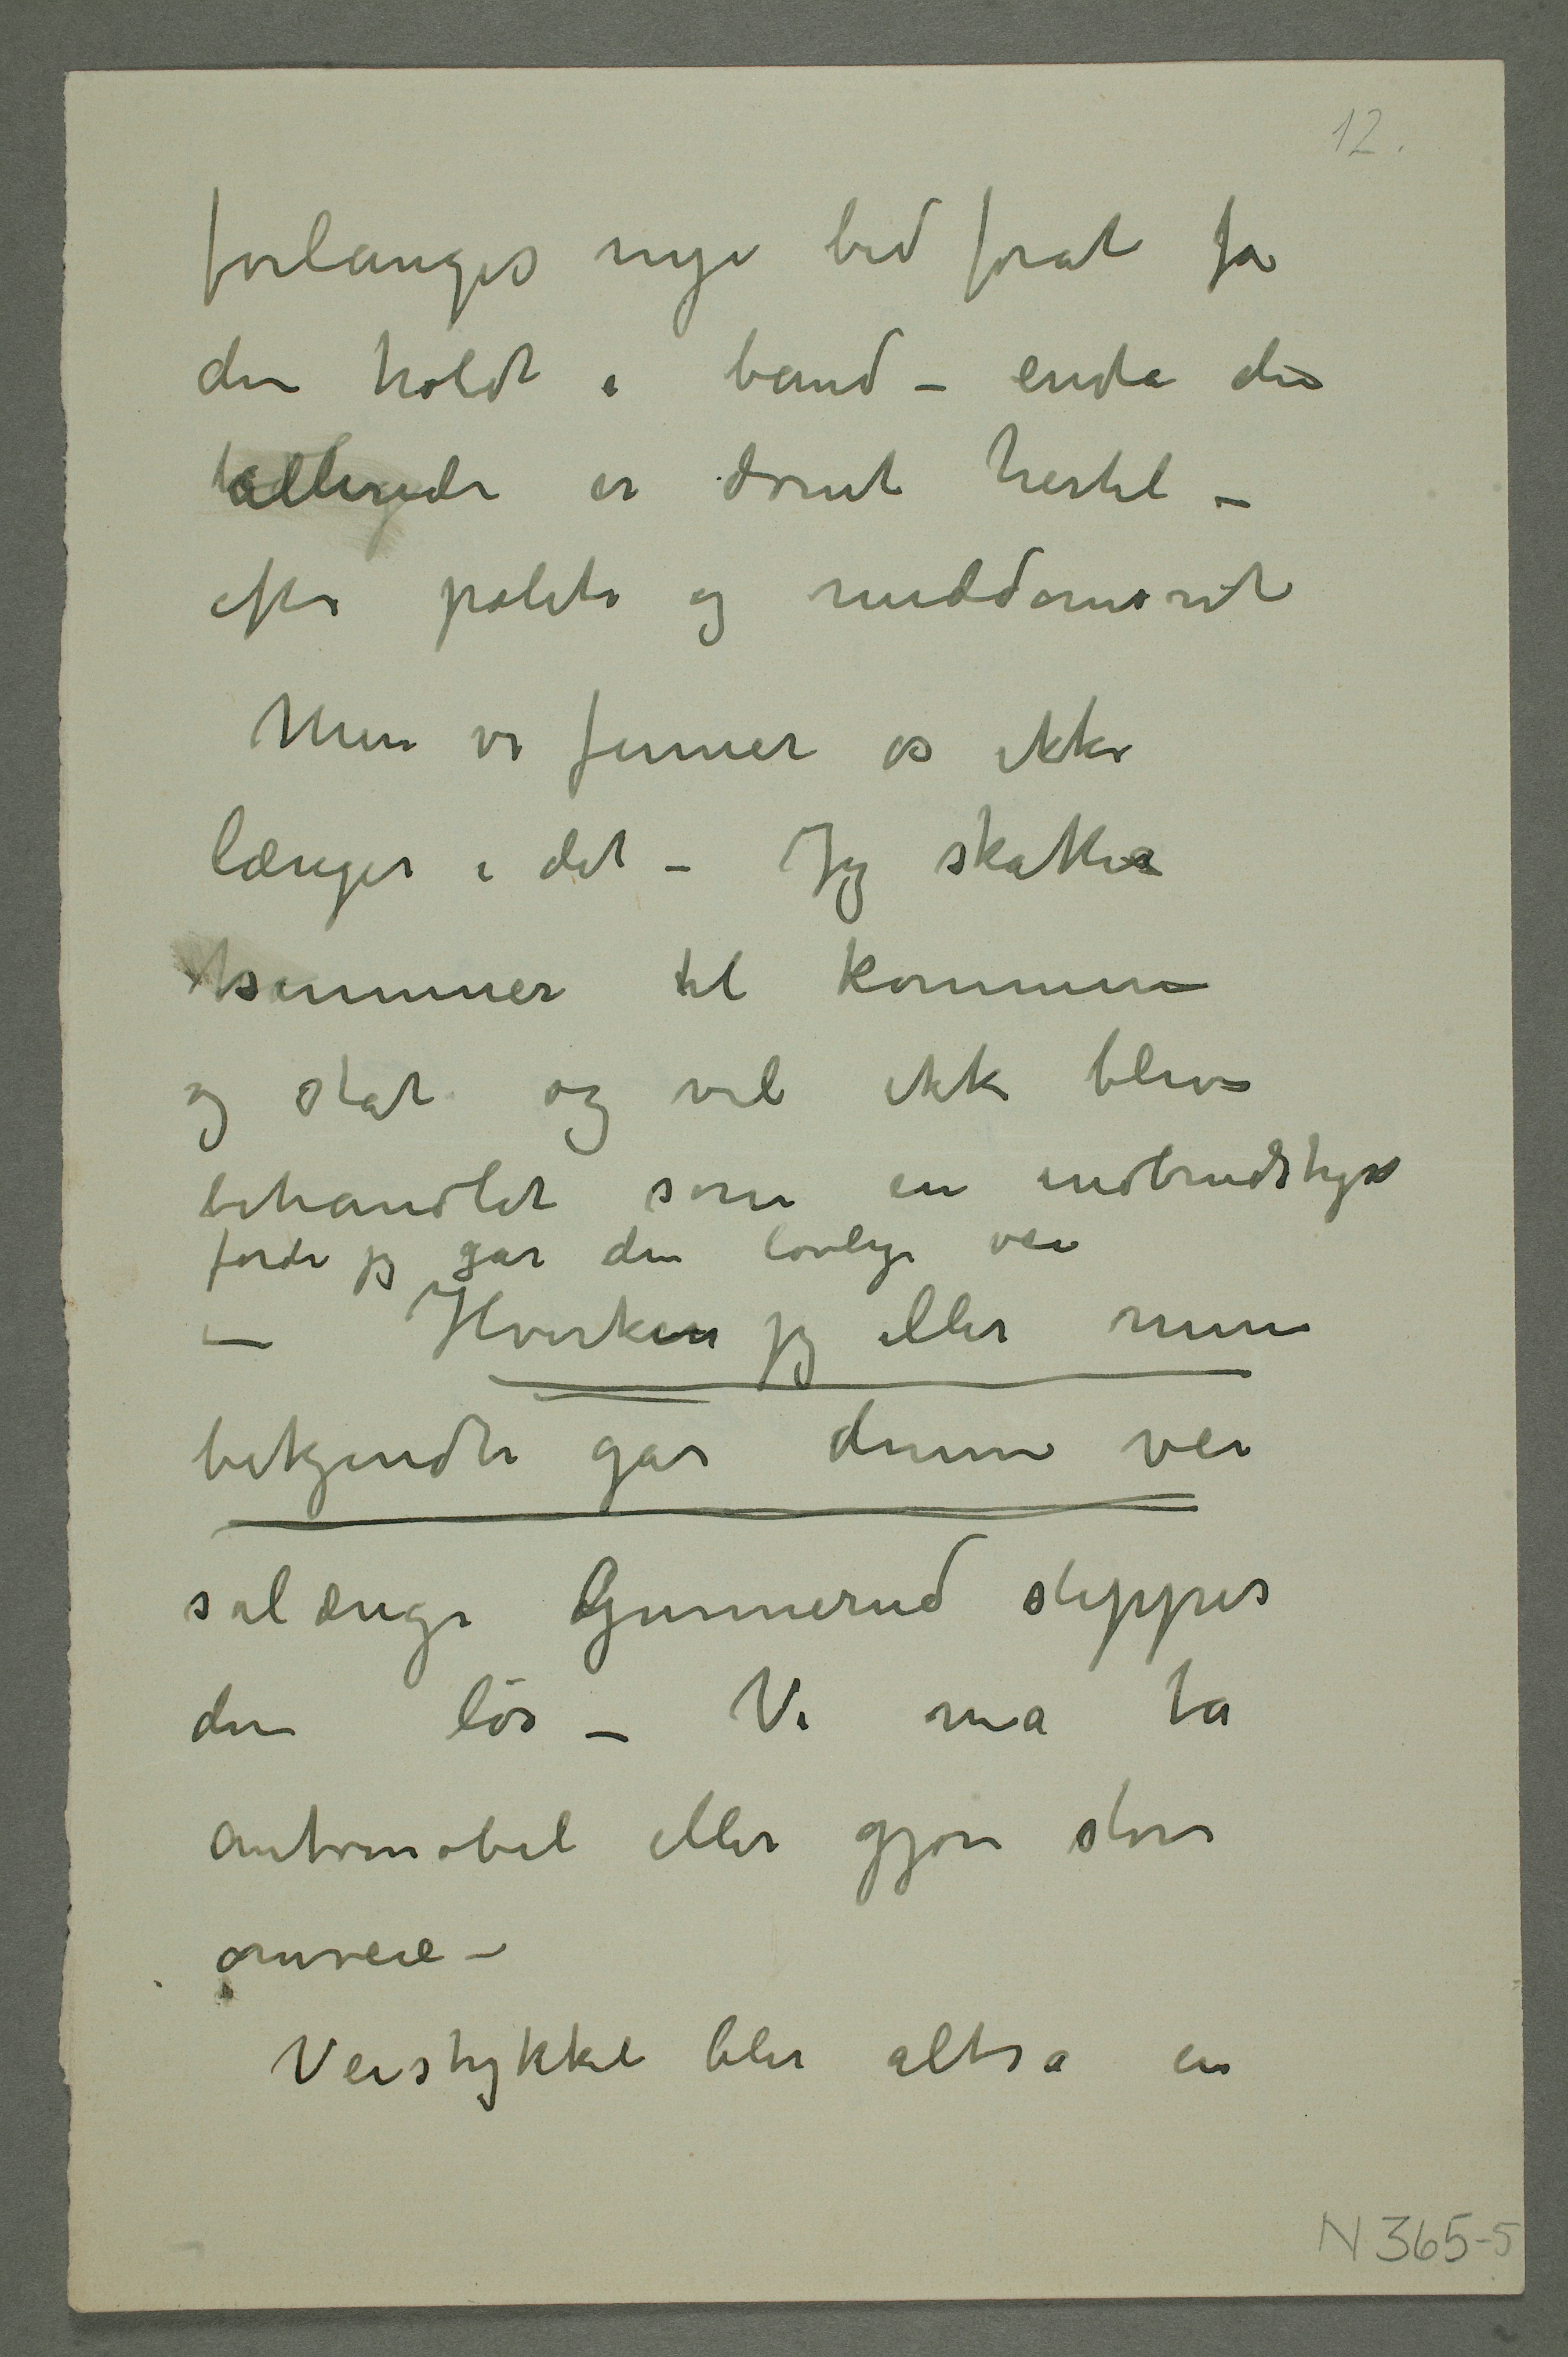 12.
forlanges nye bid forat få
den holdt i band – enda den
allerede er dømt hertil –
efter politi og meddomsret
Men vi finner os ikke
længer i det – Jeg skatter
summer til kommune
og stat og vil ikke blive
behandlet som en indbrudstyv
fordi jeg går den lovlige vei
– Hverken jeg eller mine
bekjendte går denne vei
sålænge Gunnerud slippes
den løs – Vi må ta
automobil eller gjøre store
omveie –
Veistykket blir altså en
N 365-5